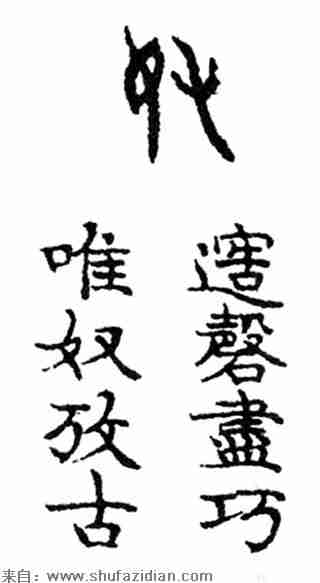 磬盡巧
唯奴攷古
来自：www.shufazidian.com